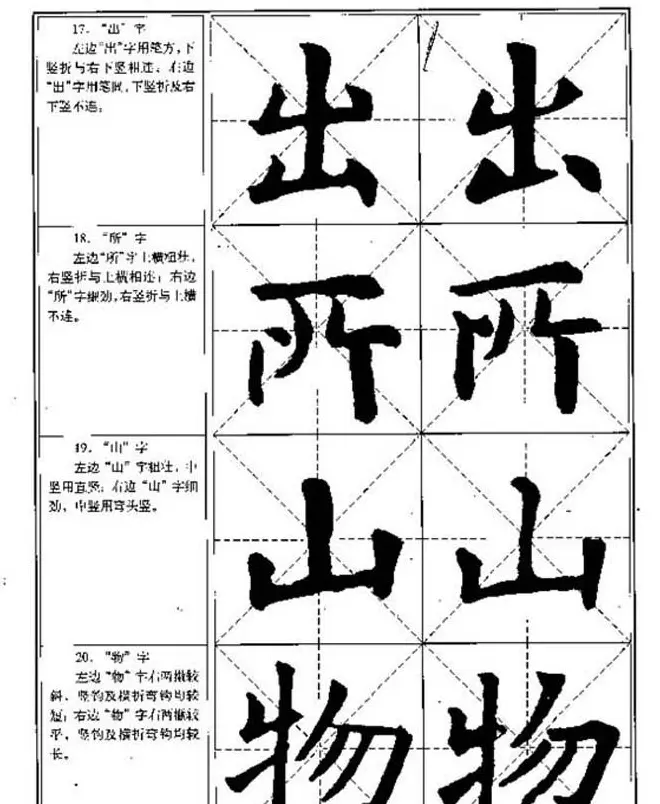 17. “出”字
左边“出”字用笔方，下
竖折与右下竖相连；右边
“出”字用笔圆，下竖折及右
下竖不连。
出 出
18. “所”字
左边“所”字上横粗壮，
右竖折与上横相连；右边
“所”字细劲，右竖折与上横
不连。
所 所
19. “山”字
左边“山”字粗壮，中
竖用直竖；右边“山”字细
劲，中竖用弯头竖。
山 山
20. “物”字
左边“物”字右两撇较
斜，竖钩及横折弯钩均较
短；右边“物”字右两撇较
平，竖钩及横折弯钩均较
长。
物 物